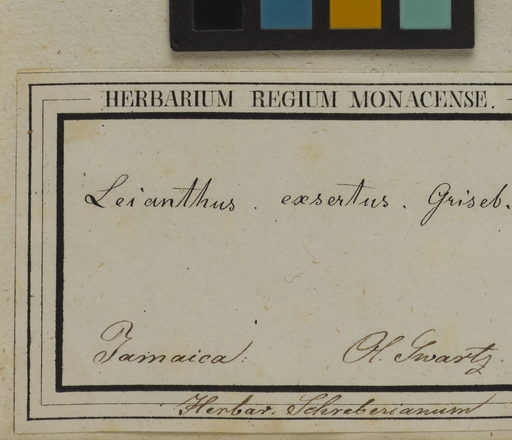 HERBARIUM REGIUM MONACENSE.
Leianthus. exsertus. Griseb.
Jamaica. Ol. Swartz.
Herbar. Schreberianum